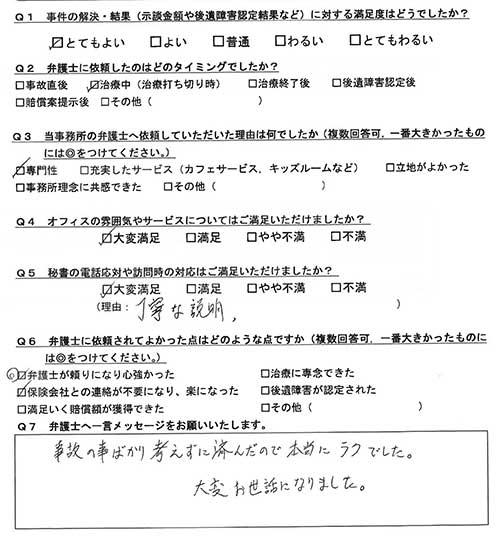 Q1 事件の解決・結果（示談金額や後遺障害認定結果など）に対する満足度はどうでしたか？
☑とてもよい □よい □普通 □わるい □とてもわるい
Q2 弁護士に依頼したのはどのタイミングでしたか？
□事故直後 ☑治療中（治療打ち切り時） □治療終了後 □後遺障害認定後
□賠償案提示後 □その他（ ）
Q3 当事務所の弁護士へ依頼していただいた理由は何でしたか（複数回答可，一番大きかったもの
には◎をつけてください。）
☑専門性 □充実したサービス（カフェサービス，キッズルームなど） □立地がよかった
□事務所理念に共感できた □その他（ ）
Q4 オフィスの雰囲気やサービスについてはご満足いただけましたか？
☑大変満足 □満足 □やや不満 □不満
Q5 秘書の電話応対や訪問時の対応はご満足いただけましたか？
☑大変満足 □満足 □やや不満 □不満
（理由： 丁寧な説明， ）
Q6 弁護士に依頼されてよかった点はどのような点ですか（複数回答可，一番大きかったものに
は◎をつけてください。）
◎☑弁護士が頼りになり心強かった □治療に専念できた
☑保険会社との連絡が不要になり、楽になった □後遺障害が認定された
□満足いく賠償額が獲得できた □その他（ ）
Q7 弁護士へ一言メッセージをお願いいたします。
事故の事ばかり考えずに済んだので本当にラクでした。
大変お世話になりました。